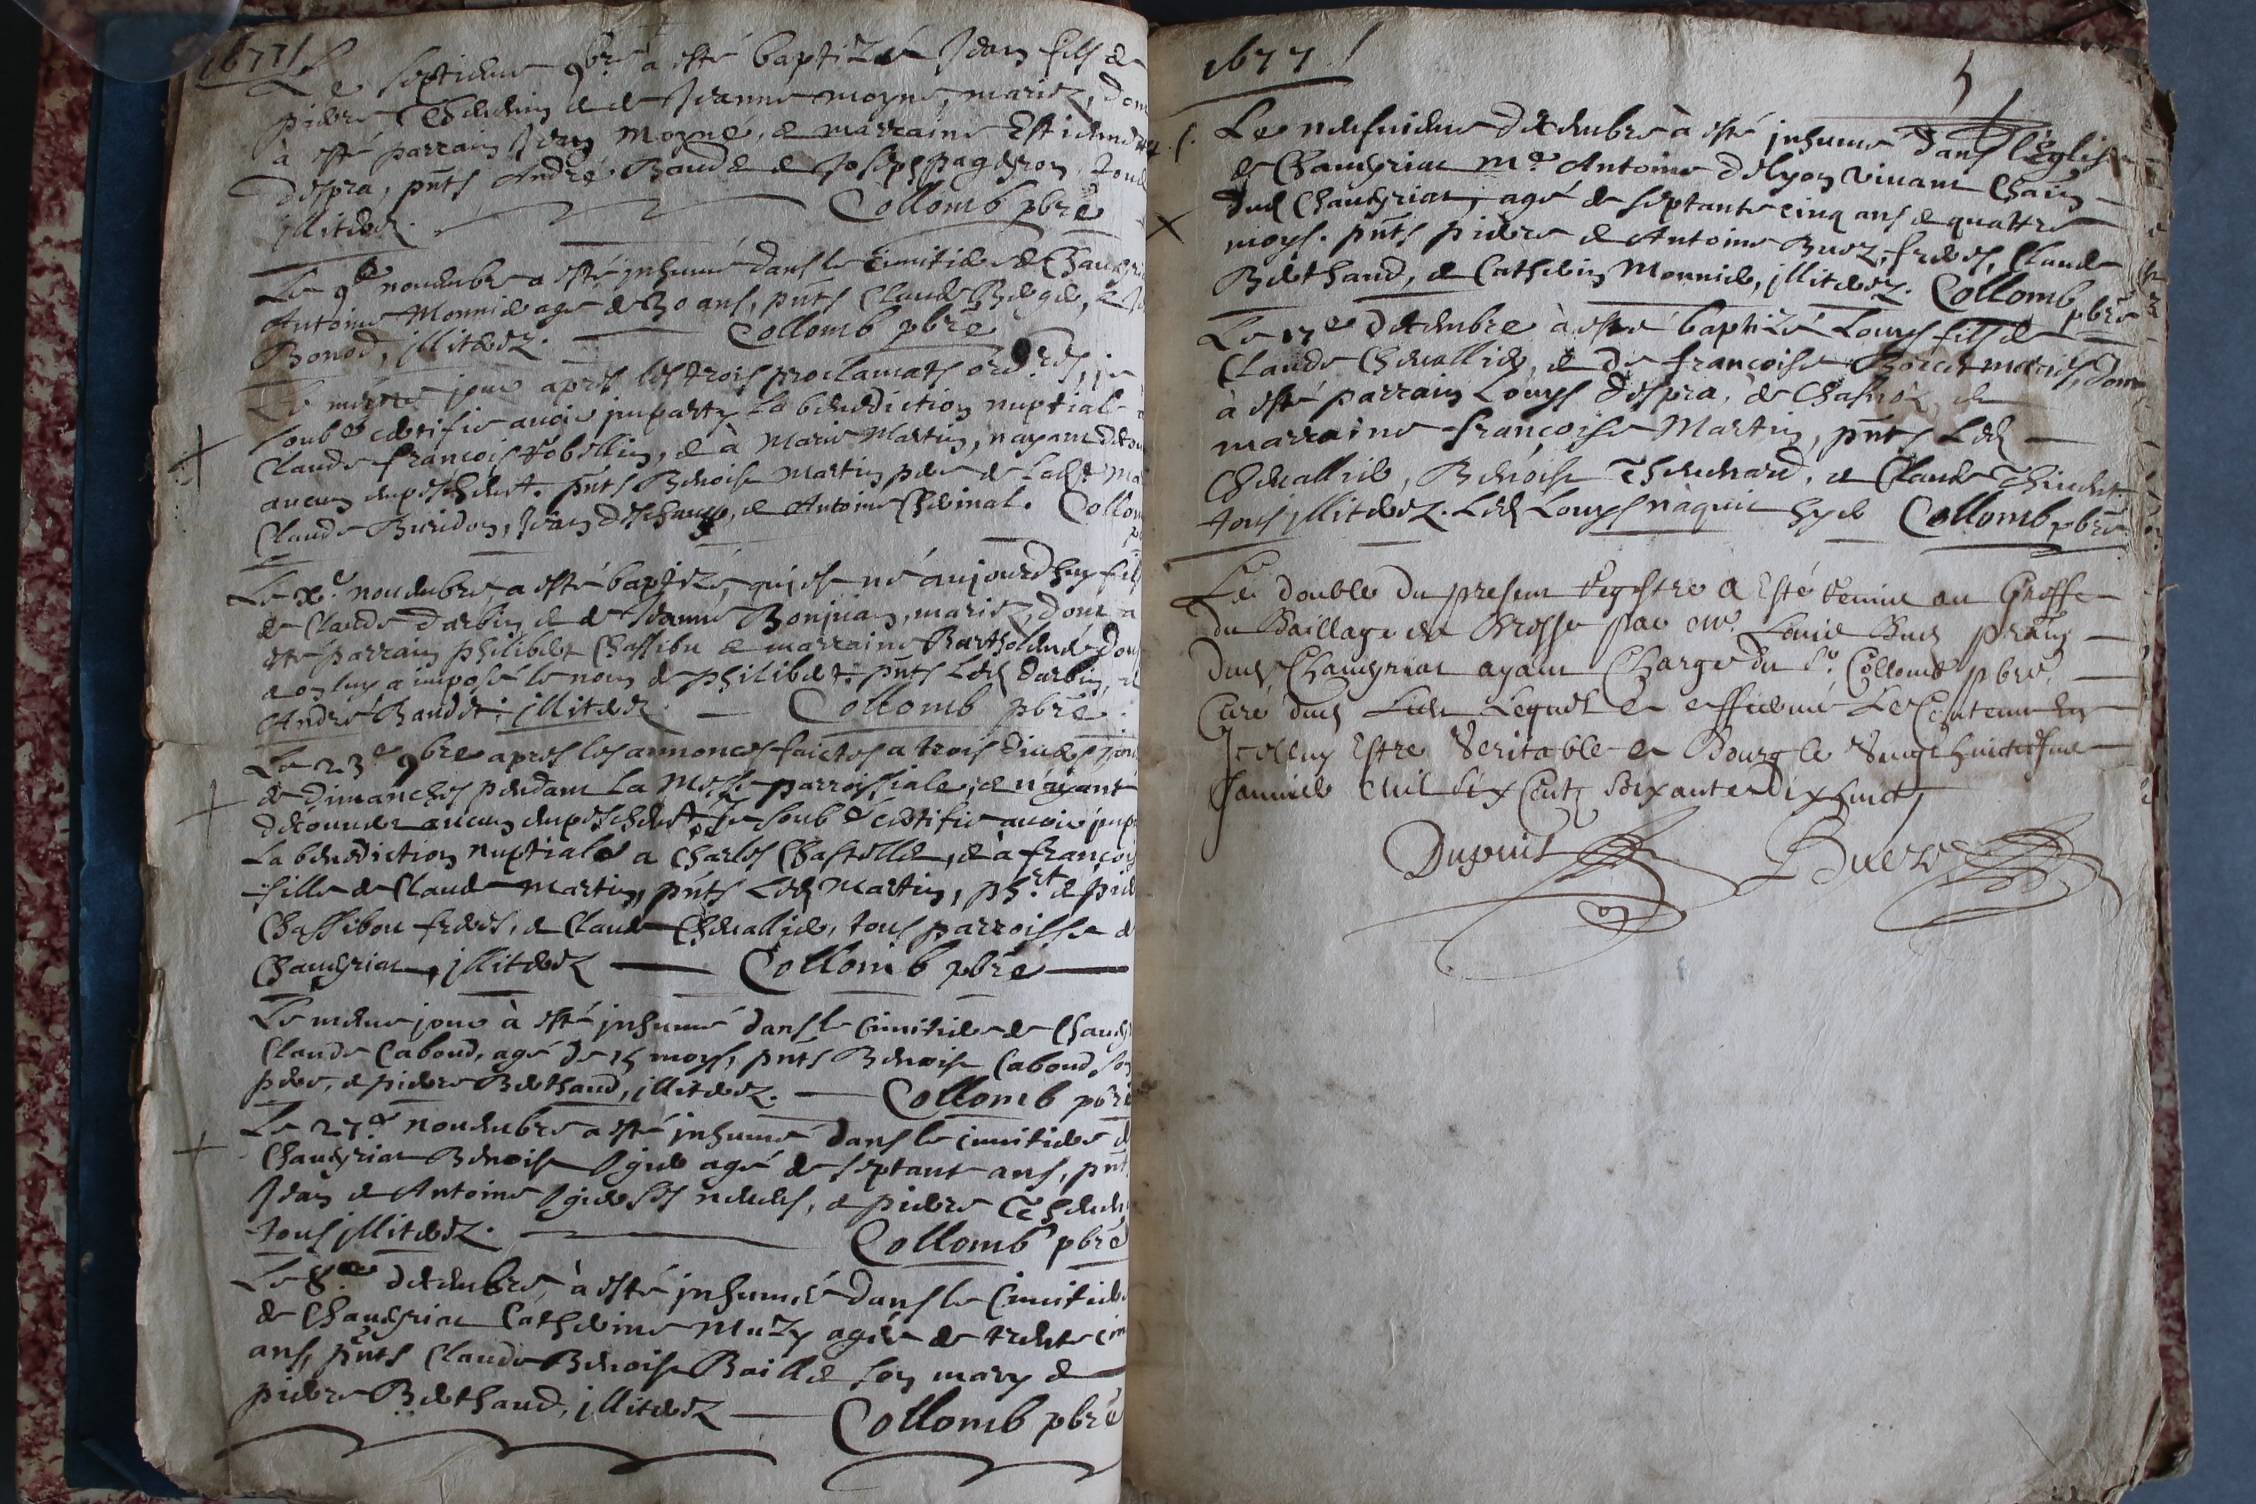 1677
Le septieme 9bre a esté baptizé Jean fils de
pierre Thevenin et de Jeanne moyne, mariez, dont
à esté parrain Jean moyne, et marraine Estiennette
despra, pñts André Baudet et Joseph pageron tous
illiterez. Collomb pbrē
Le 9e novembre a esté inhumé dans le cimitiere de Chaveyria
Antoine Monnier agé de 30 ans, pñts Claude
Bonod, illiterez. Collomb pbrē
Le même jour apres les trois proclamats ordres, je
soubé certifie avoir imparty la benediction nuptiale a
Claude françois et à Marie Martin, nayant decou
aucun empeschemt. pñts Benoist Martin pere de lade Ma
Claude Buridon, Jean deschamp, et Antoine Chevinal. Collom
Le xe novembre a esté baptizé, qui est né aujourdhuy fils
de Claude darbin et de Jeanne Bonjean, mariez, dont a
esté parrain philibert Chassibou et marraine Bartholemée dou
et on luy a imposé le nom de philibert. pñts led darbin, et
André Baudet illiterez. Collomb pbrē
Le 23e 9bre apres les annonces faictes a trois divers jours
de dimanches pendant la Messe parroissiale, et nayant
decouvert aucun empeschemt, Je soubé certifie avoir impa
la benediction nuptiale a Charles Chastellet, et à françoise
fille de Claude martin, pñts led Martin, phrt et pierre
Chassibou freres, et Claude Chevallier, tous parroisse de
Chaveyriat, illiterez Collomb pbrē
Le meme jour à esté inhumé dans le cimitiere de Chavey
Claude Caboud, agé de 15 moys, pñts Benoist Caboud son
pere, et pierre Berthaud, illiterez. Collomb pbrē
Le 27e novembre a esté inhumé dans le cimitiere de
Chaveyriat Benoist agé de septante ans, pñt
Jean et Antoine ses neveus, et pierre Theveni
tous illiterez. Collomb pbrē
Le 8me decembre, à esté inhumée dans le Cimitiere
de Chaveyriat Catherine Muzy agée de trente cin
ans, pñts Claude Benoist Baillet son mary et
pierre Berthaud, illiterez Collomb pbrē
1677
Le neufvieme decembre à esté inhumé dans l'Eglise
de Chaveyriat Me Antoine delyon vivant Chãin
dud Chaveyriat, agé de septante cinq ans et quattre
moys. pñts pierre et Antoine Buez, freres, Claude
Berthaud, et Catherin Monnier, illiterez. Collomb pbrē
Le 17e decembre à esté baptizé Louys fils de
Claude Chevallier, et de françoise mariés, dont
à esté parrain Louys despra, de et
marraine françoise Martin, pñts Led
Chevallier, Benoist Thevenard, et Claude
tous illiterez. Led Louys naquit hyer Collomb pbrē
Le double du present registre a Esté remis au Greffe
du Baillage de Bresse par Me Louis Buez
dud Chaveyriat ayant Charge du Sr Collomb pbrē,
Curé dud Lieu Lequel a affirmé Le Contenu En
Iceluy Estre Veritable a Bourg le vingt huictiesme
Janvier Mil six Cents soixante dix huict
Dupuis Buez